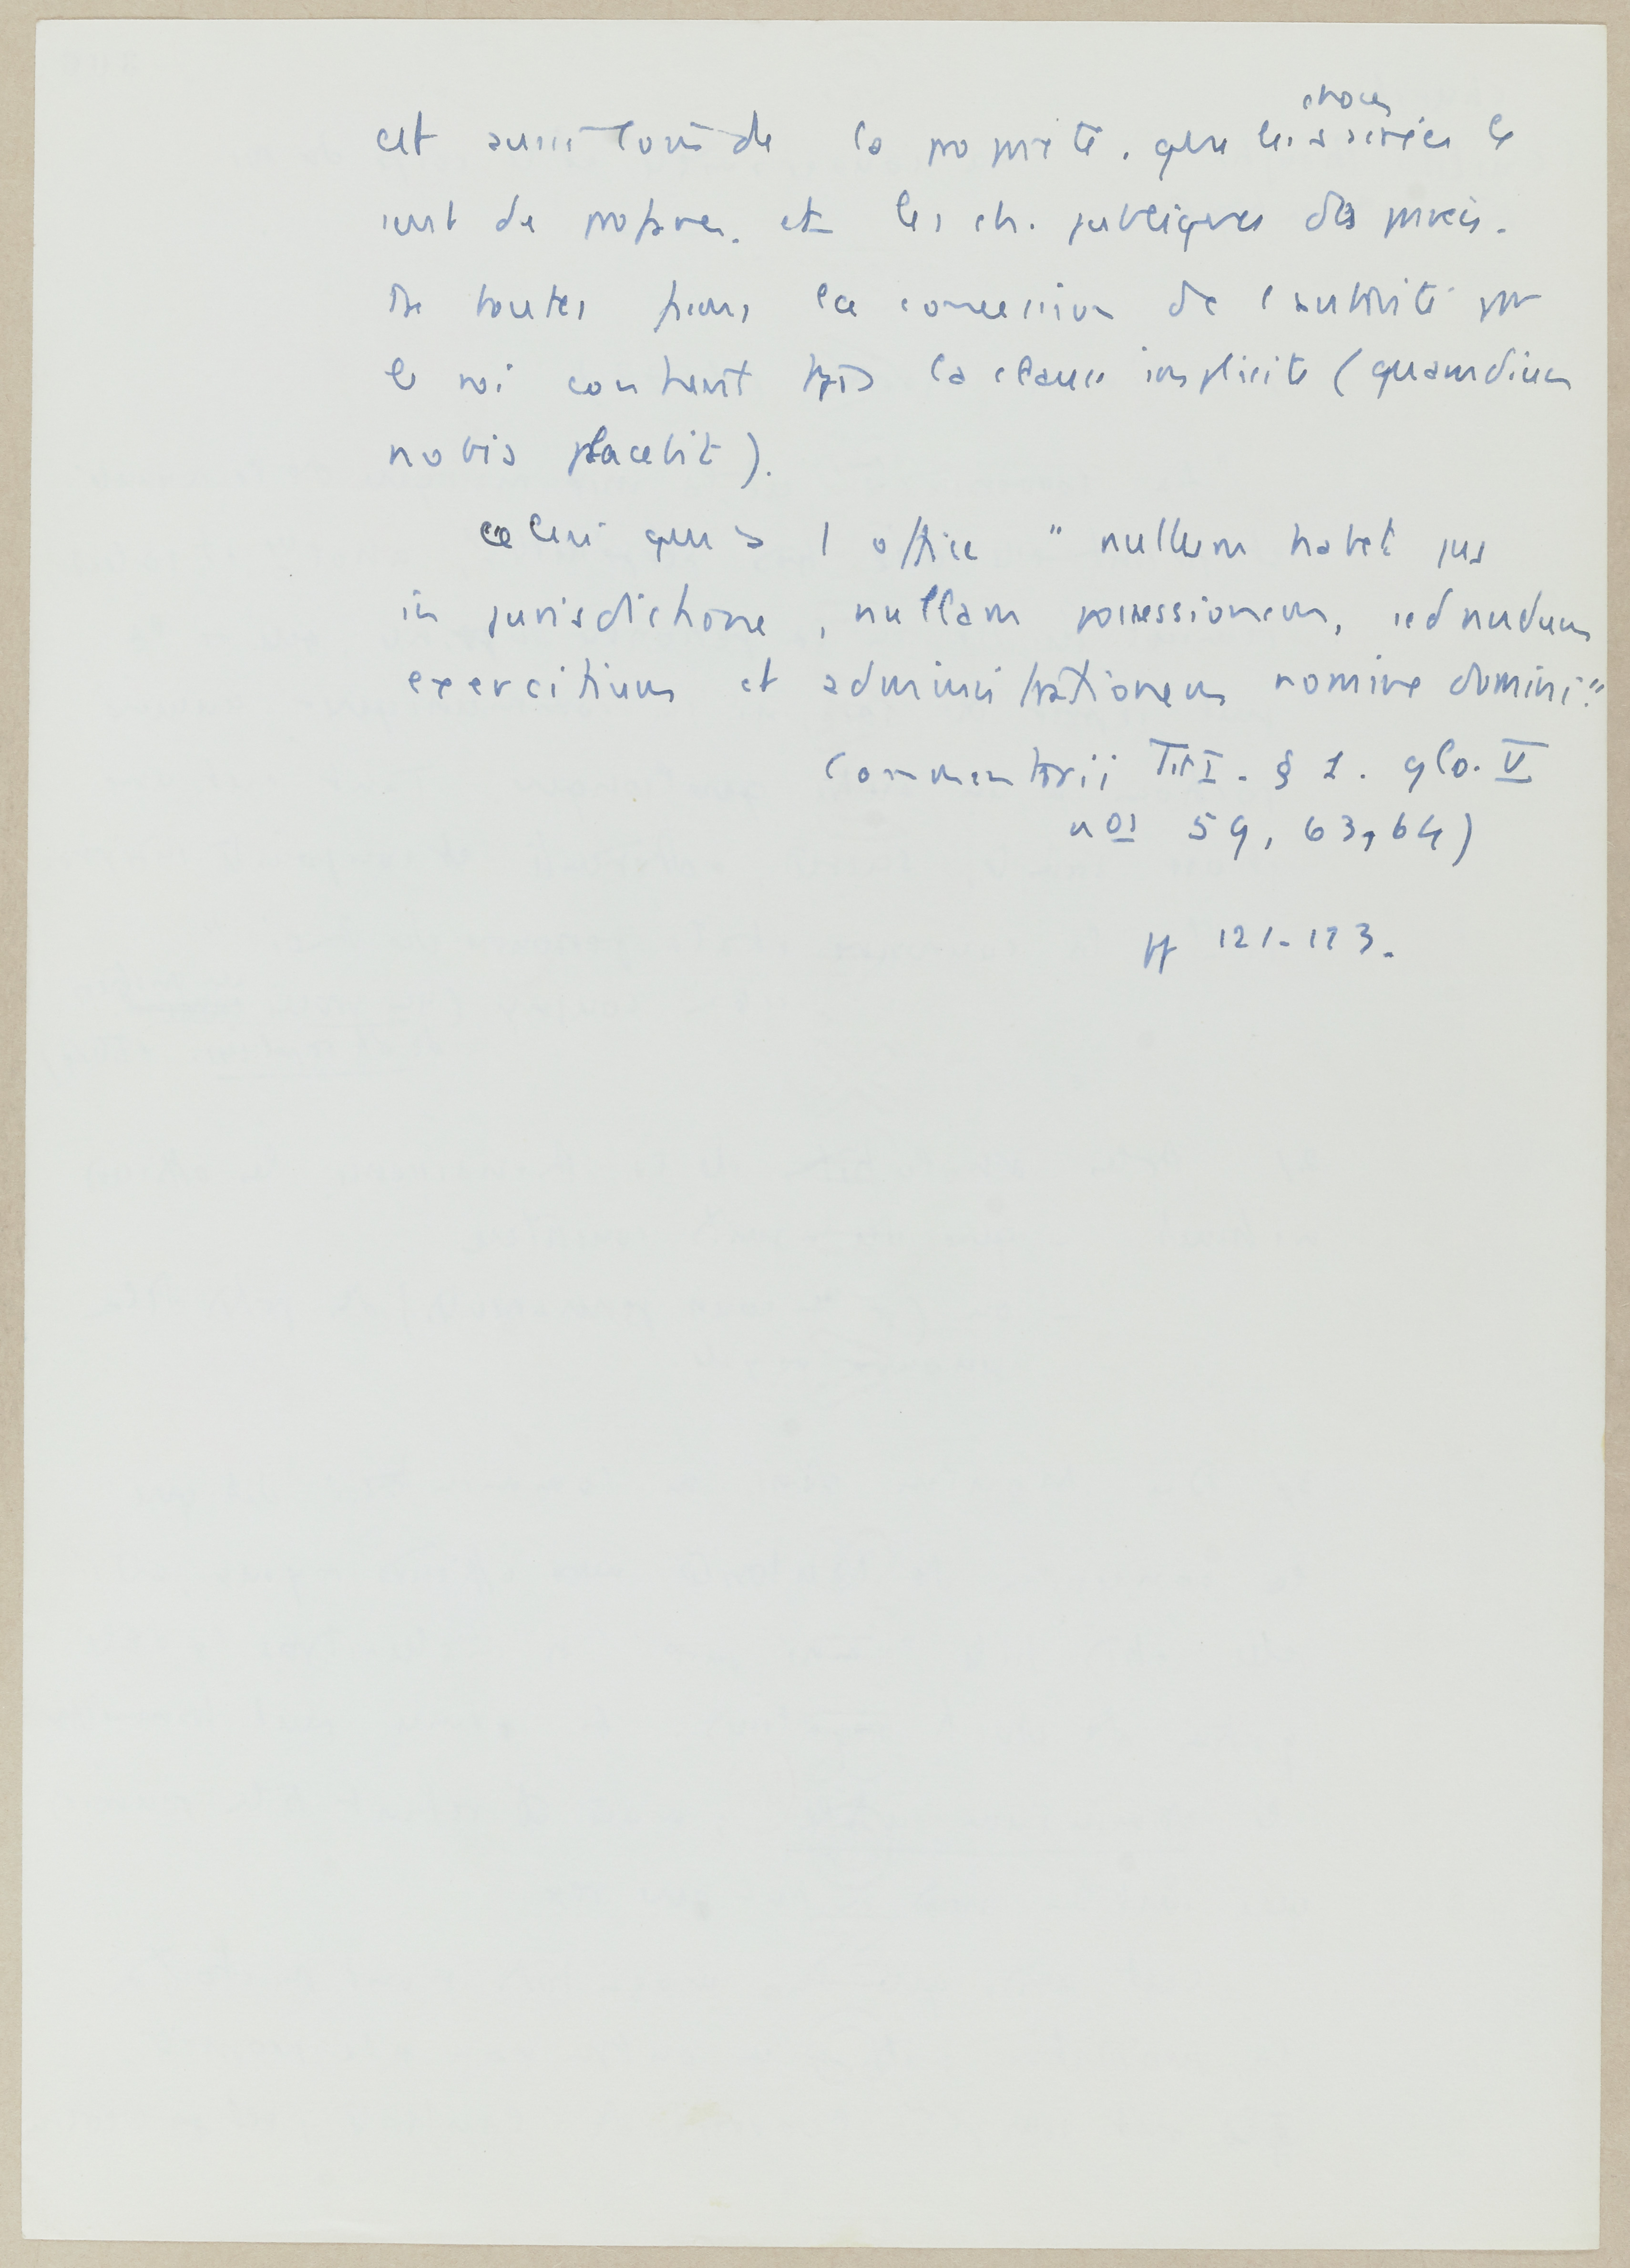 est aussi loin de la propriété. que les choses sacrées le
sont de propres. et les ch. publiques des privées.
De toutes façons la concession de l'autorité par
le roi contient tjs la clause implicite (quamdiu
nobis placebit).
celui qui a l office "nullum habet jus
in jurisdictione, nullam possessionem, sed nudum
exercitium et administrationem nomine domini."
Commentarii Tit I. § 1. glo. V
nos 59, 63, 64)
pp 121-123.